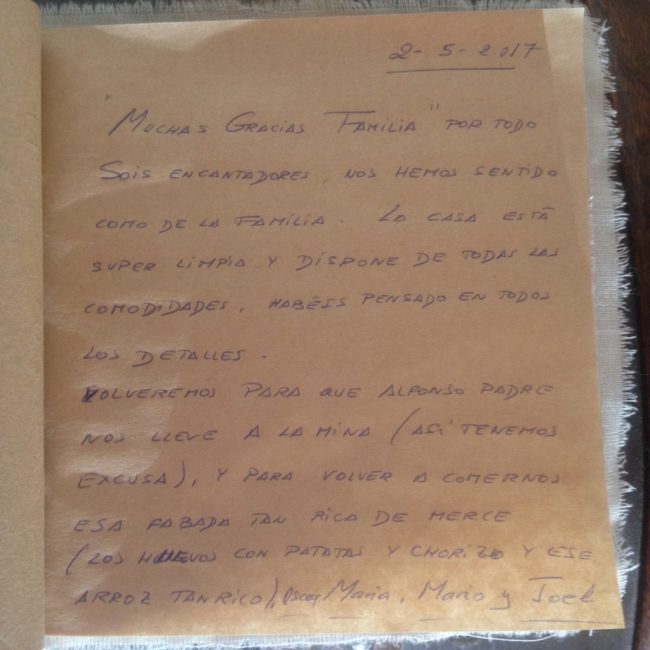 2-5-2017
"Muchas Gracias Familia" por todo
Sois encantadores, nos hemos sentido
como de la familia. La casa está
super limpia y dispone de todas las
comodidades, habéis pensado en todos
los detalles.
Volveremos para que Alfonso padre
nos lleve a la mina (así tenemos
excusa), y para volver a comernos
esa fabada tan rica de Merce
(los huevos con patatas y chorizo y ese
arroz tan rico), Oscar, Maria, Mario y Joel